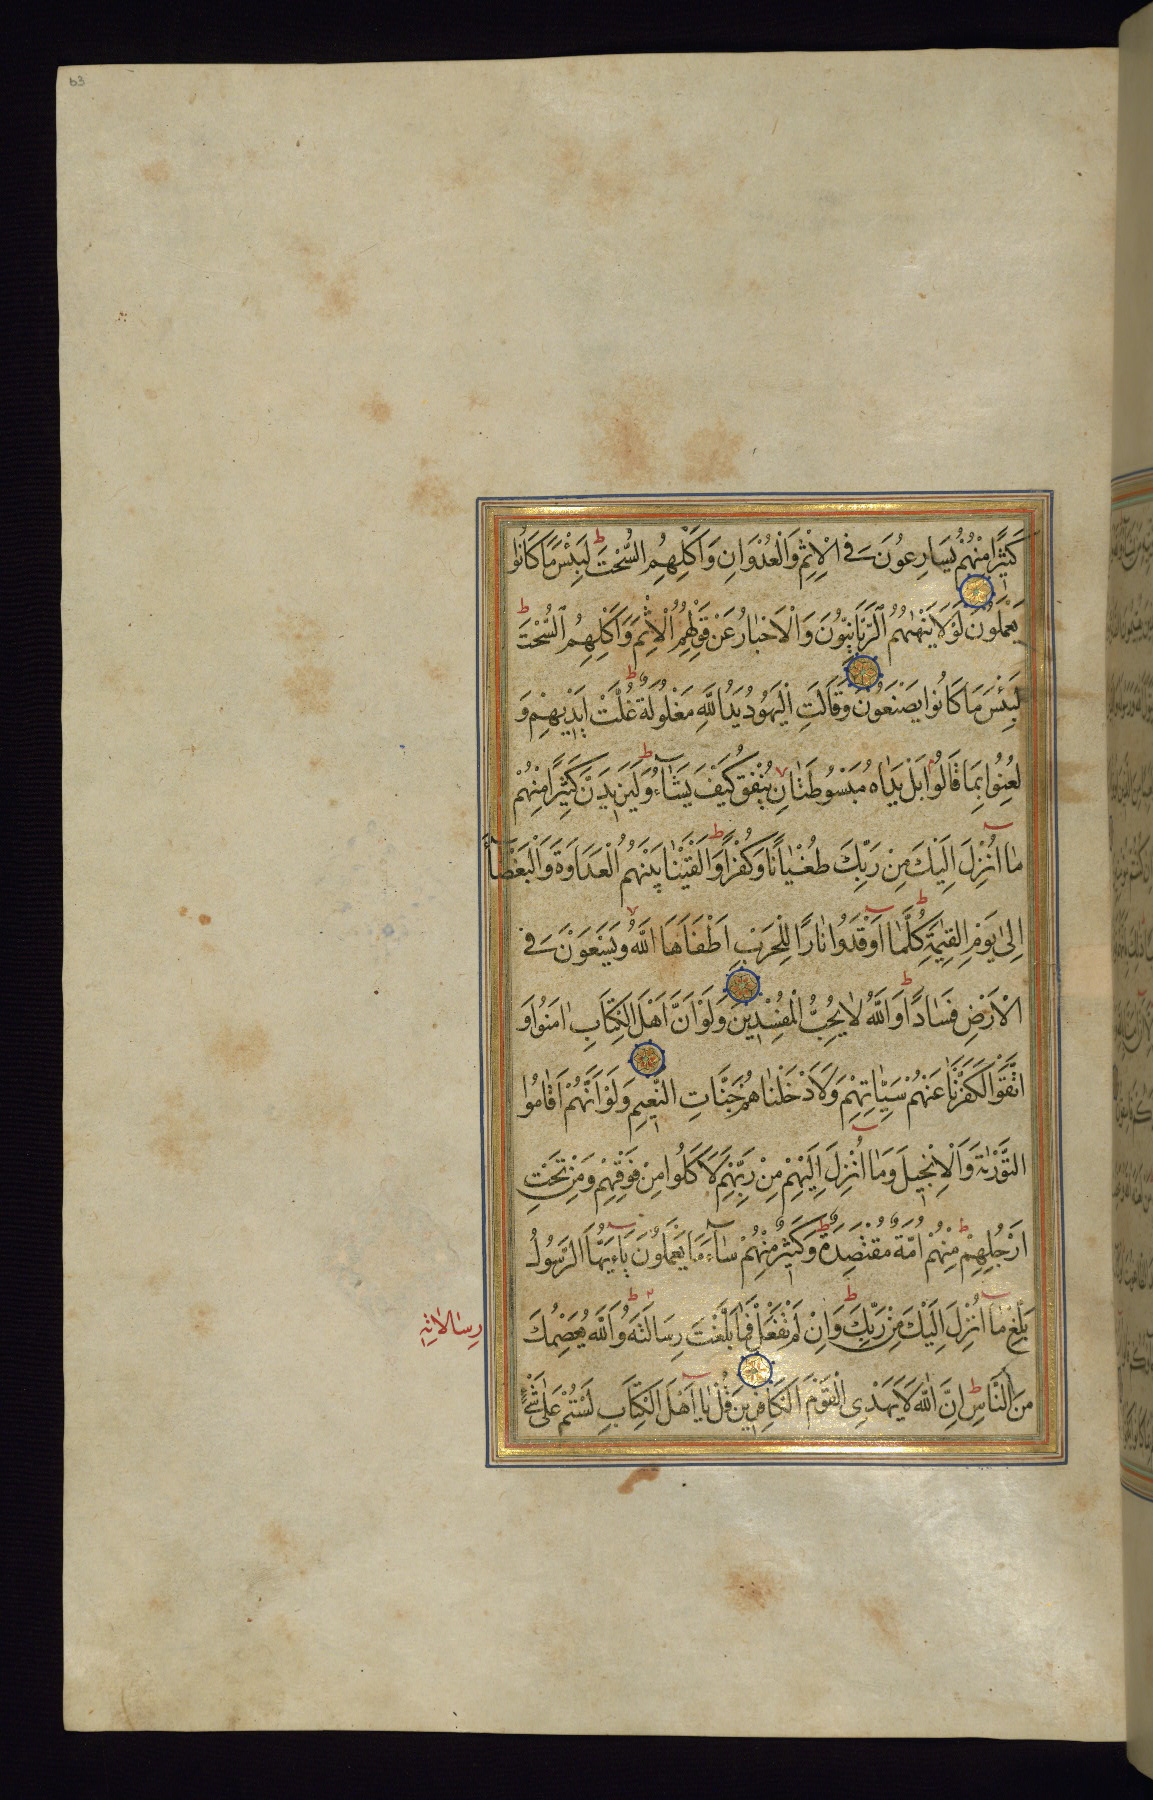 كَثِيرًا مِنْهُمْ يُسَارِعُونَ فِي الْاِثْمِ وَالْعُدْوَانِ وَاَكْلِهِمِ السُّحْتَ ط لَبِئْسَ مَا كَانُوا
يَعْمَلُونَ لَوْلَا يَنْهٰيهُمُ الرَّبَّانِيُّونَ وَالْاَحْبَارُ عَنْ قَوْلِهِمُ الْاِثْمَ وَاَكْلِهِمُ السُّحْتَ ط
لَبِئْسَ مَا كَانُوا يَصْنَعُونَ وَقَالَتِ الْيَهُودُ يَدُ اللّٰهِ مَغْلُولَةٌ ط غُلَّتْ اَيْدِيهِمْ وَ
لُعِنُوا بِمَا قَالُوا بَلْ يَدَاهُ مَبْسُوطَتَانِ يُنْفِقُ كَيْفَ يَشَآءُ ط وَلَيَزِيدَنَّ كَثِيرًا مِنْهُمْ
مَا اُنْزِلَ اِلَيْكَ مِنْ رَبِّكَ طُغْيَانًا وَكُفْرًا ط وَاَلْقَيْنَا بَيْنَهُمُ الْعَدَاوَةَ وَالْبَغْضَآءَ
اِلٰى يَوْمِ الْقِيٰمَةِ ط كُلَّمَا اَوْقَدُوا نَارًا لِلْحَرْبِ اَطْفَاَهَا اللّٰهُ وَيَسْعَوْنَ فِي
الْاَرْضِ فَسَادًا ط وَاللّٰهُ لَا يُحِبُّ الْمُفْسِدِينَ وَلَوْ اَنَّ اَهْلَ الْكِتَابِ اٰمَنُوا وَ
اتَّقَوْا لَكَفَّرْنَا عَنْهُمْ سَيِّاٰتِهِمْ وَلَاَدْخَلْنَاهُمْ جَنَّاتِ النَّعِيمِ وَلَوْ اَنَّهُمْ اَقَامُوا
التَّوْرٰيةَ وَالْاِنْجِيلَ وَمَا اُنْزِلَ اِلَيْهِمْ مِنْ رَبِّهِمْ لَاَكَلُوا مِنْ فَوْقِهِمْ وَمِنْ تَحْتِ
اَرْجُلِهِمْ ط مِنْهُمْ اُمَّةٌ مُقْتَصِدَةٌ ط وَكَثِيرٌ مِنْهُمْ سَآءَ مَا يَعْمَلُونَ يَاءَيُّهَا الرَّسُولُ
بَلِّغْ مَا اُنْزِلَ اِلَيْكَ مِنْ رَبِّكَ ط وَاِنْ لَمْ تَفْعَلْ فَمَا بَلَّغْتَ رِسَالَتَهُ ط وَاللّٰهُ يَعْصِمُكَ
رِسَالَاتِهِ
مِنَ النَّاسِ ط اِنَّ اللّٰهَ لَا يَهْدِي الْقَوْمَ الْكَافِرِينَ قُلْ يَا اَهْلَ الْكِتَابِ لَسْتُمْ عَلٰى شَيْءٍ
63